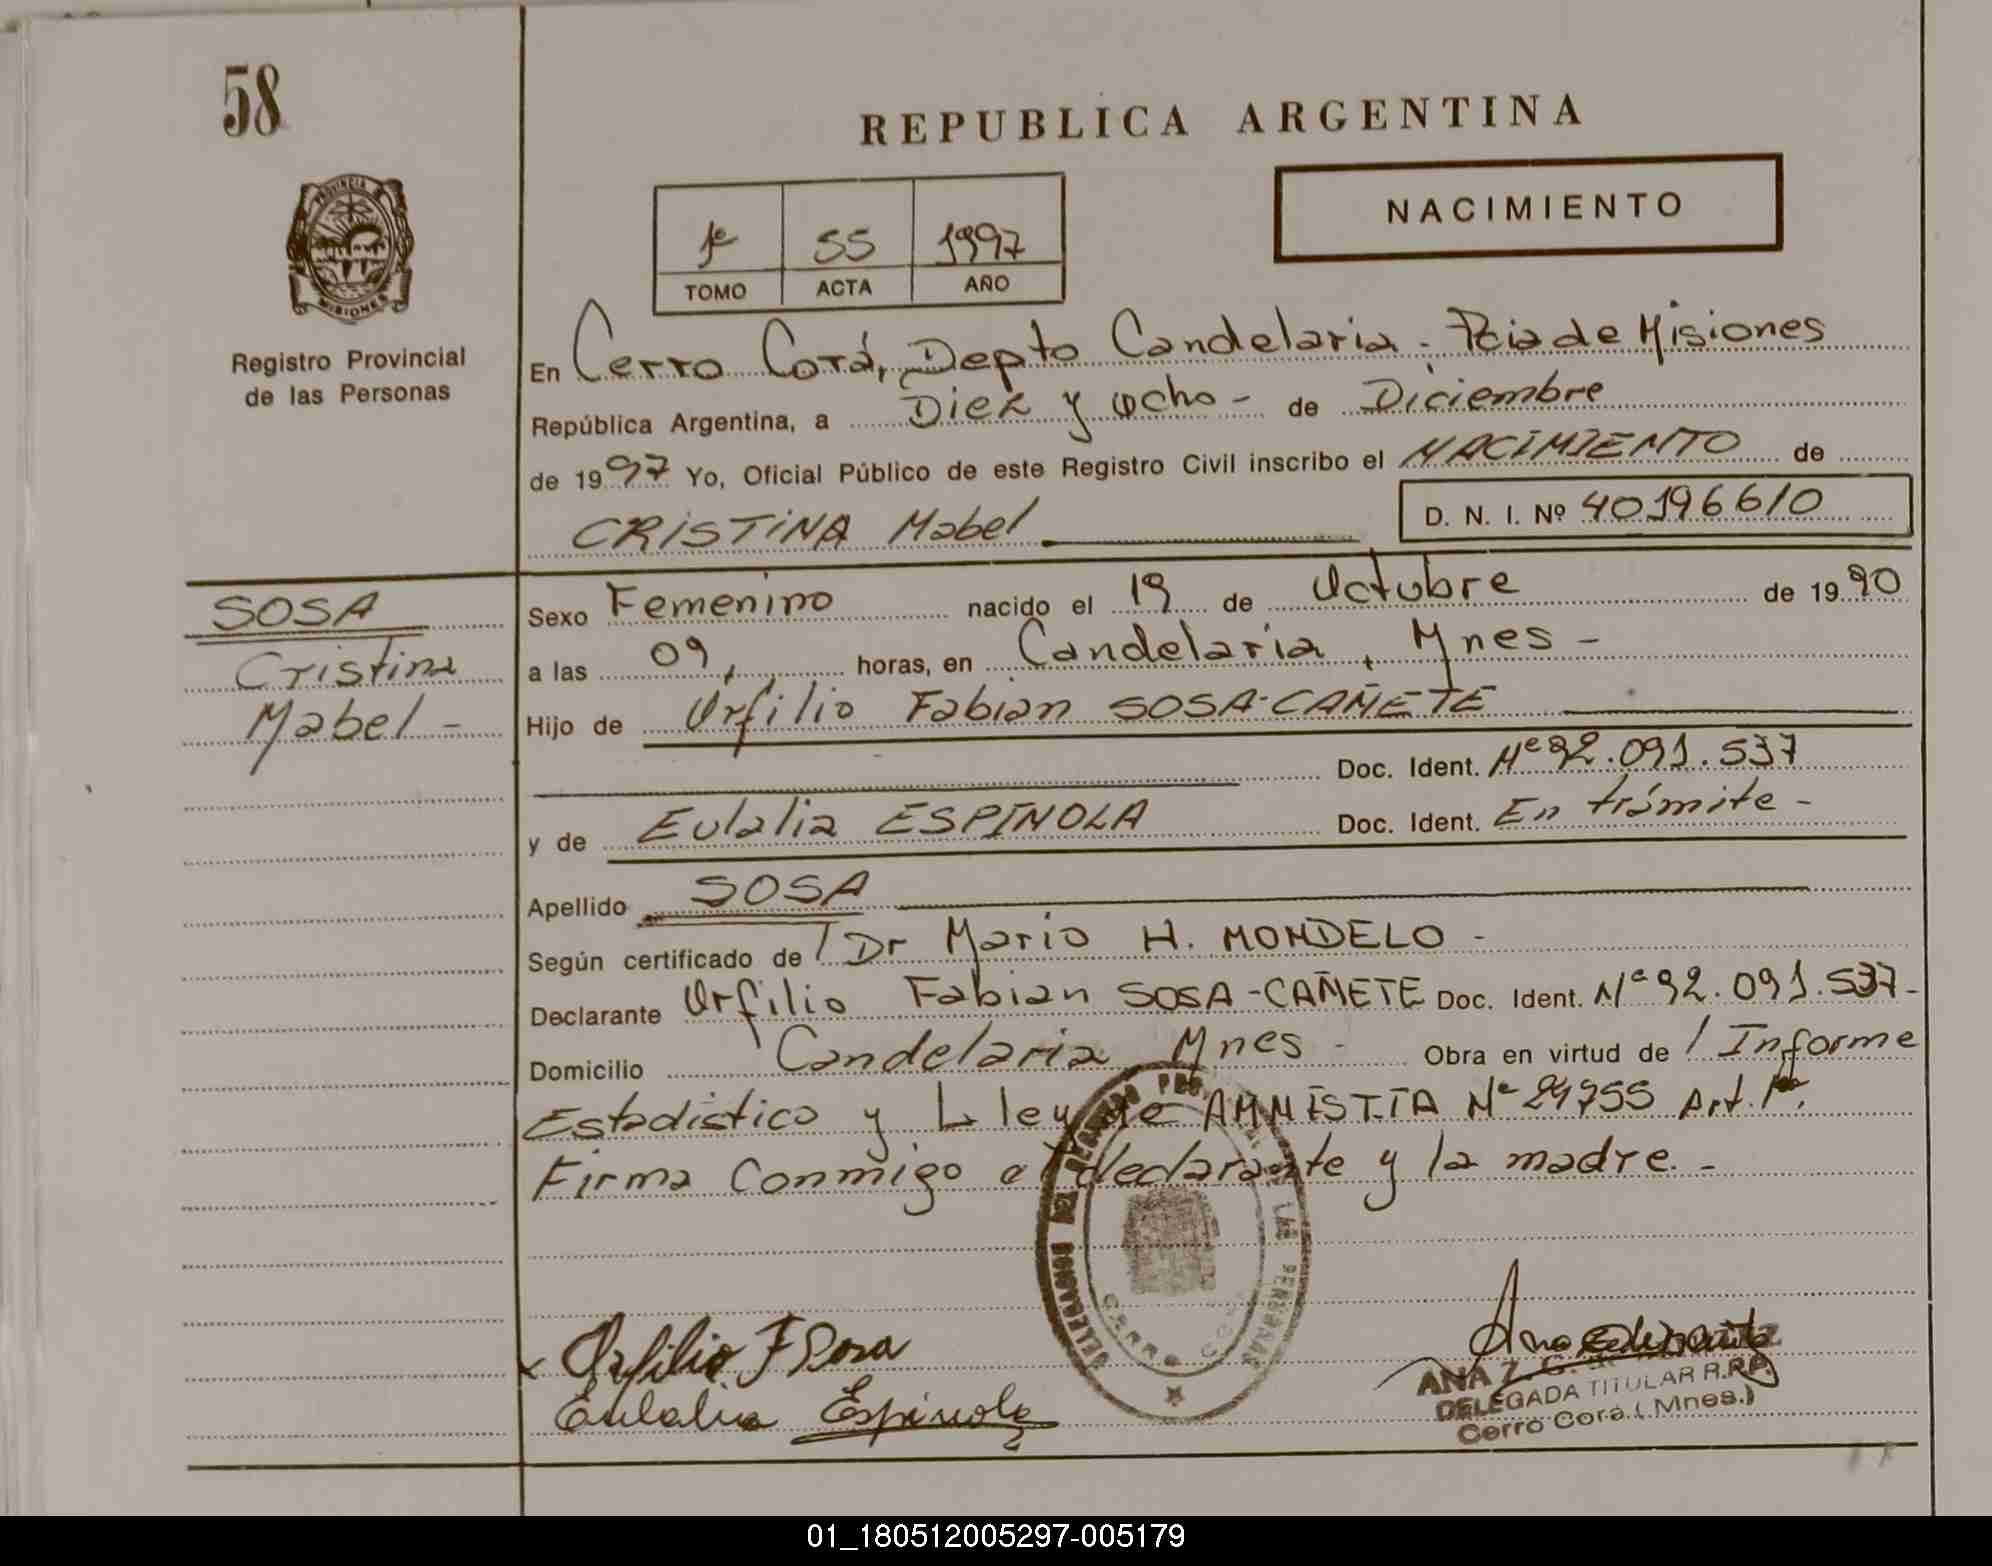 58
REPUBLICA ARGENTINA
NACIMIENTO
PROVINCIA DE
MISIONES
1º 55 1997
TOMO ACTA AÑO
Registro Provincial
de las Personas
En Cerro Corá, Depto Candelaria - Pcia de Misiones
República Argentina, a Diez y ocho - de Diciembre
de 1997 Yo, Oficial Público de este Registro Civil inscribo el NACIMIENTO de
D. N. I. Nº 40196610
CRISTINA Mabel
SOSA
Cristina
Mabel -
Sexo Femenino nacido el 19 de Octubre de 1990
a las 09, horas, en Candelaria, Mnes -
Hijo de Orfilio Fabian SOSA-CAÑETE
Doc. Ident. Nº 92.091.537
y de Eulalia ESPINOLA Doc. Ident. En trámite -
Apellido SOSA
Según certificado de / Dr Mario H. MONDELO -
Declarante Orfilio Fabian SOSA-CAÑETE Doc. Ident. Nº 92.091.537-
Domicilio Candelaria Mnes - Obra en virtud de / Informe
Estadístico y L ley de AMNISTIA Nº 24755 Art. 1º.
Firma conmigo el declarante y la madre. -
DELEGACION DEL REGISTRO LAS PERSONAS
CERRO
Orfilio F Sosa
Eulalia Espinola
ANA Z. G.
DELEGADA TITULAR R.R.P.
Cerro Corá (Mnes.)
01_180512005297-005179